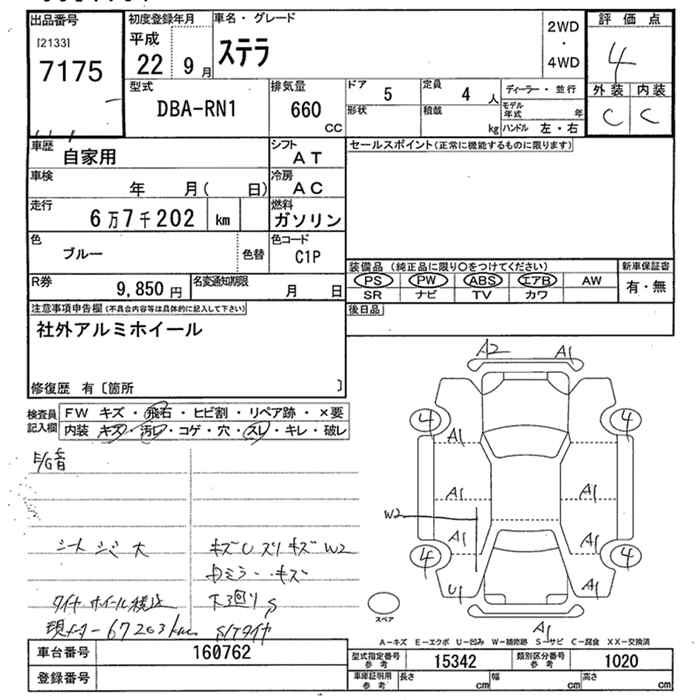 出品番号 初度登録年月 車名・グレード 評価点
[2133] 平成 ステラ 2WD
7175 22 9月 ・ 4
4WD
型式 排気量 ドア 5 定員 4人 ディーラー・並行 外装 内装
DBA-RN1 660 CC 形状 積載 kg モデル年式 年 C C
ハンドル 左・右
車歴 自家用 シフト AT セールスポイント(正常に機能するものに限ります)
車検 年 月( 日) 冷房 AC
走行 6万7千202 km 燃料 ガソリン
色 ブルー 色替 色コード C1P
装備品(純正品に限り○をつけてください) 新車保証書
R券 9,850円 名変通知期限 月 日 PS PW ABS エアB AW 有・無
SR ナビ TV カワ
注意事項申告欄(不具合内容等は具体的に記入して下さい) 後日品
社外アルミホイール
修復歴 有〔箇所 〕
A2 A1
検査員 FW キズ・飛石・ヒビ割・リペア跡・×要
記入欄 内装 キズ・汚レ・コゲ・穴・スレ・キレ・破レ
4 4
A1
E/G音
A1 A1
W2
A1 A1
シートシミ大 キズUズリキズW2
4 4
ミラーキズ
U1 A1
タイヤホイール積込 下廻りS
スペア
現メーター67203km S/Tタイヤ A1
A-キズ E-エクボ U-凹み W-補修跡 S-サビ C-腐食 XX-交換済
車台番号 160762 型式指定番号 参考 15342 類別区分番号 参考 1020
登録番号 車庫証明用 参考 長さ cm 幅 cm 高さ cm